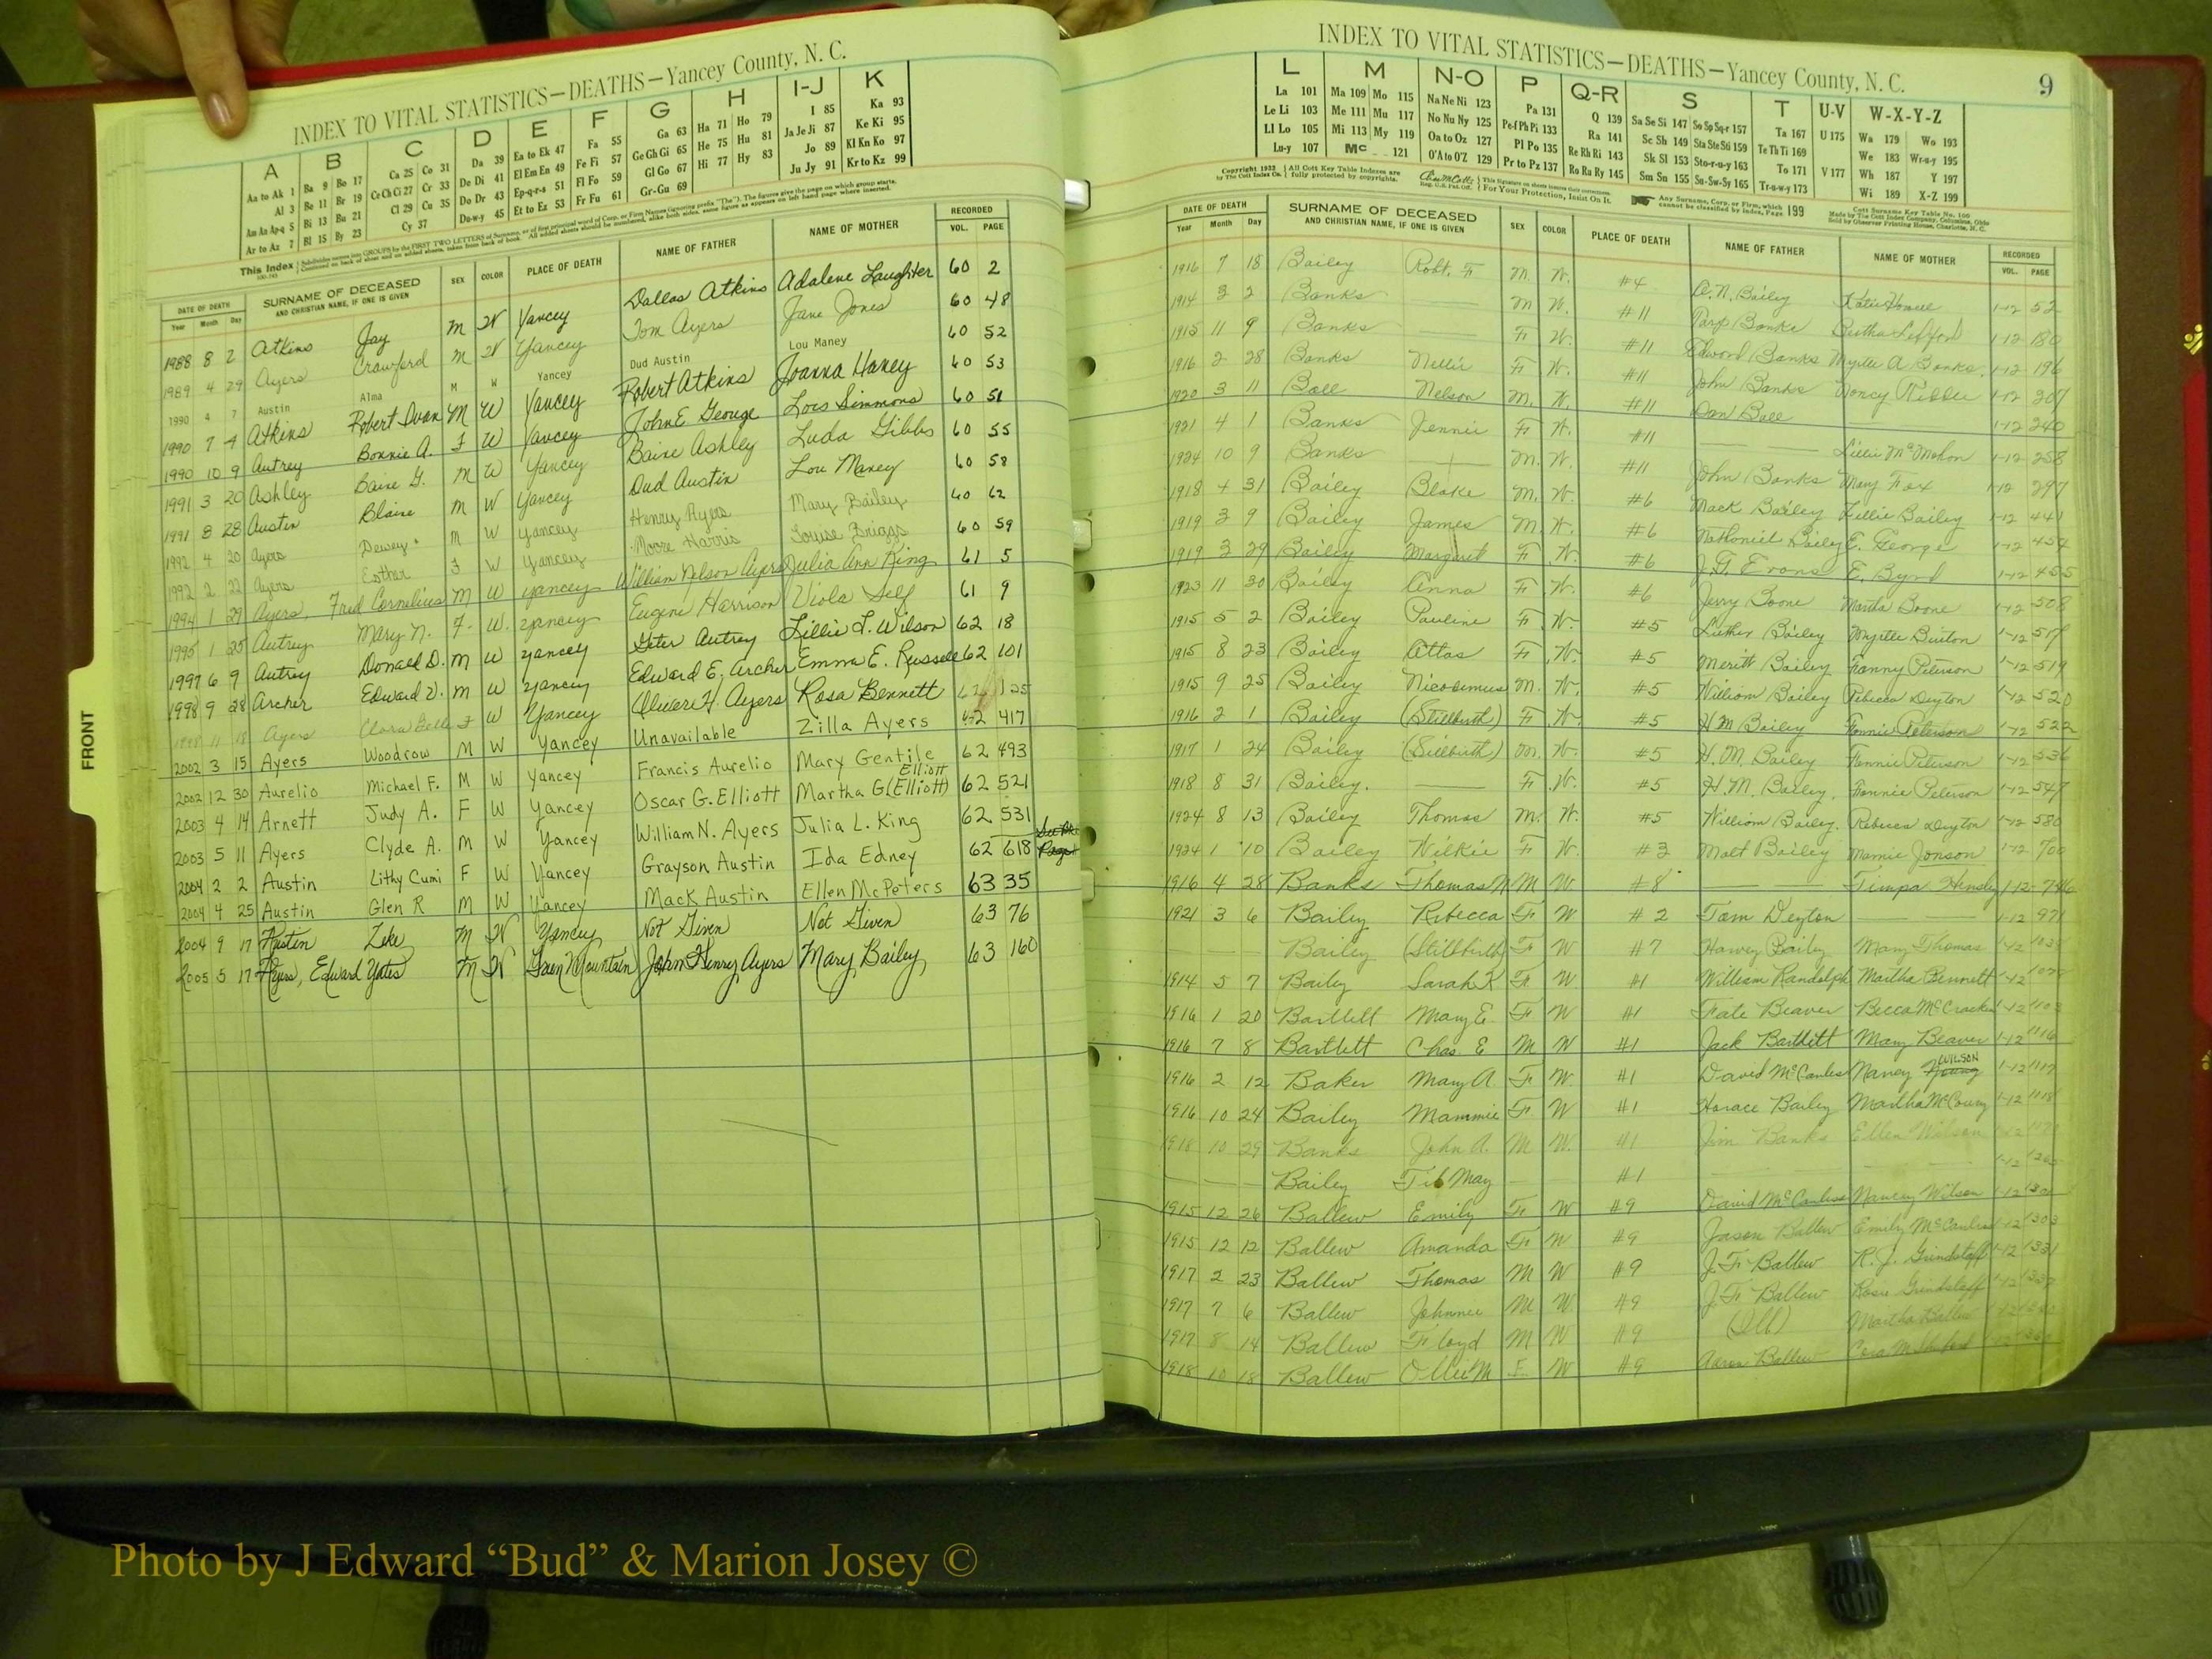 INDEX TO VITAL STATISTICS—DEATHS—Yancey County, N. C.
A B C D E F G H I-J K
Aa to Ak 1 Ba 9 Bo 17 Ca 25 Co 31 Da 39 Ea to Ek 47 Fa 55 Ga 63 Ha 71 Ho 79 I 85 Ka 93
Al 3 Be 11 Br 19 Ce Ch Ci 27 Cr 33 De Di 41 El Em En 49 Fe Fi 57 Ge Gh Gi 65 He 75 Hu 81 Ja Je Ji 87 Ke Ki 95
Am An Ap-q 5 Bi 13 Bu 21 Cl 29 Cu 35 Do Dr 43 Ep-q-r-s 51 Fl Fo 59 Gl Go 67 Hi 77 Hy 83 Jo 89 Kl Kn Ko 97
Ar to Az 7 Bl 15 By 23 Cy 37 Du-w-y 45 Et to Ez 53 Fr Fu 61 Gr-Gu 69 Ju Jy 91 Kr to Kz 99
This Index
DATE OF DEATH SURNAME OF DECEASED AND CHRISTIAN NAME, IF ONE IS GIVEN SEX COLOR PLACE OF DEATH NAME OF FATHER NAME OF MOTHER RECORDED
Year Month Day VOL. PAGE
1988 8 2 Atkins Jay M W Yancey Dallas Atkins Adalene Laughter 60 2
1989 4 29 Ayers Crawford M W Yancey Tom Ayers Jane Jones 60 48
1990 4 7 Austin Alma M W Yancey Dud Austin Lou Maney 60 52
1990 7 4 Atkins Robert Ivan M W Yancey Robert Atkins Joanna Haney 60 53
1990 10 9 Autrey Bonnie A. F W Yancey John E George Lois Simmons 60 51
1991 3 20 Ashley Baine G. M W Yancey Baine Ashley Luda Gibbs 60 55
1991 8 28 Austin Blaine M W Yancey Dud Austin Lou Maney 60 58
1992 4 20 Ayers Dewey M W Yancey Henry Ayers Mary Bailey 60 62
1992 2 22 Ayers Esther F W Yancey Moore Harris Louise Briggs 60 59
1994 1 29 Ayers, Fred Cornelius M W Yancey William Nelson Ayers Julia Ann King 61 5
1995 1 25 Autrey Mary N. F W. Yancey Eugene Harrison Viola Self 61 9
1997 6 9 Autrey Donald D. M W Yancey Geter Autrey Lillie L. Wilson 62 18
1998 9 28 Archer Edward V. M W Yancey Edward E. Archer Emma E. Russell 62 101
1998 11 18 Ayers Clara Belle F W Yancey Oliver H. Ayers Rosa Bennett 62 125
2002 3 15 Ayers Woodrow M W Yancey Unavailable Zilla Ayers 62 417
2002 12 30 Aurelio Michael F. M W Yancey Francis Aurelio Mary Gentile 62 493
2003 4 14 Arnett Judy A. F W Yancey Oscar G. Elliott Martha G (Elliott) Elliott 62 521
2003 5 11 Ayers Clyde A. M W Yancey William N. Ayers Julia L. King 62 531
2004 2 2 Austin Lithy Cumi F W Yancey Grayson Austin Ida Edney 62 618
2004 4 25 Austin Glen R M W Yancey Mack Austin Ellen McPeters 63 35
2004 9 17 Austin Zeke M W Yancey Not Given Not Given 63 76
2005 5 17 Ayers, Edward Yates M W Green Mountain John Henry Ayers Mary Bailey 63 160
FRONT
INDEX TO VITAL STATISTICS—DEATHS—Yancey County, N. C. 9
L M N-O P Q-R S T U-V W-X-Y-Z
La 101 Ma 109 Mo 115 Na Ne Ni 123 Pa 131 Q 139 Sa Se Si 147 So Sp Sq-r 157 Ta 167 U 175 Wa 179 Wo 193
Le Li 103 Me 111 Mu 117 No Nu Ny 125 Pe-f Ph Pi 133 Ra 141 Sc Sh 149 Sta Ste Sti 159 Te Th Ti 169 We 183 Wr-u-y 195
Ll Lo 105 Mi 113 My 119 Oa to Oz 127 Pl Po 135 Re Rh Ri 143 Sk Sl 153 Sto-r-u-y 163 To 171 V 177 Wh 187 Y 197
Lu-y 107 Mc 121 O'A to O'Z 129 Pr to Pz 137 Ro Ra Ry 145 Sm Sn 155 Su-Sw-Sy 165 Tr-u-w-y 173 Wi 189 X-Z 199
Copyright 1932 by The Cott Index Co. All Cott Key Table Indexes are fully protected by copyrights. For Your Protection, Insist On It. Any Surname, Corp. or Firm, which cannot be classified by index, Page 199
DATE OF DEATH SURNAME OF DECEASED AND CHRISTIAN NAME, IF ONE IS GIVEN SEX COLOR PLACE OF DEATH NAME OF FATHER NAME OF MOTHER RECORDED
Year Month Day VOL. PAGE
1916 7 18 Bailey Robt. F M. W. #4 Bailey 1-12 52
1914 3 2 Banks M W. #11 Banks 1-12 180
1915 11 9 Banks F W. #11 Edward Banks Myrtle A Banks. 1-12 196
1916 2 28 Banks Nellie F W. #11 John Banks Nancy 1-12 207
1920 3 11 Ball Nelson M. W. #11 Dan Ball 1-12 240
1921 4 1 Banks Jennie F W. #11 Lillie McMahon 1-12 258
1924 10 9 Banks M. W. #11 John Banks Mary Fox 1-12 297
1918 4 31 Bailey Blake M. W. #6 Mack Bailey Lillie Bailey 1-12 441
1919 3 9 Bailey James M. W. #6 Nathaniel Bailey E. George 1-12 454
1919 3 29 Bailey Margaret F W. #6 J. G. Evans E. Byrd 1-12 455
1923 11 30 Bailey Anna F W. #6 Jerry Boone Martha Boone 1-12 508
1915 5 2 Bailey Pauline F. W. #5 Luther Bailey Myrtle Burton 1-12 517
1915 8 23 Bailey Attas F W. #5 Meritt Bailey Fanny Peterson 1-12 519
1915 9 25 Bailey Nicodemus M. W. #5 William Bailey Rebecca Deyton 1-12 520
1916 2 1 Bailey (Stillbirth) F W #5 H M Bailey Fannie Peterson 1-12 522
1917 1 24 Bailey (Stillbirth) M. W. #5 H. M. Bailey Fannie Peterson 1-12 536
1918 8 31 Bailey. F W. #5 H. M. Bailey, Fannie Peterson 1-12 547
1924 8 13 Bailey Thomas M. W. #5 William Bailey. Rebecca Deyton 1-12 580
1924 1 10 Bailey Wilkie F W. #3 Malt Bailey Mamie Jonson 1-12 700
1916 4 28 Banks Thomas N M W. #8 Timpa Hensley 1-12 746
1921 3 6 Bailey Rebecca F W #2 Tom Deyton 1-12 971
Bailey (Stillbirth) F W #7 Harvey Bailey Mary Thomas 1-12
1914 5 7 Bailey Sarah K F. W #1 William Randolph Martha Bennett 1-12
1916 1 20 Bartlett Mary E F W #1 Fate Beaver Becca McCracken 1-12 1103
1916 7 8 Bartlett Chas. E M W #1 Jack Bartlett Mary Beaver 1-12 1116
1916 2 12 Baker Mary A. F W. #1 David McCanless Nancy Young WILSON 1-12 1117
1916 10 24 Bailey Mammie F W #1 Horace Bailey Martha McCoury 1-12 1118
1918 10 29 Banks John A. M W. #1 Jim Banks Ellen Wilson 1-12
Bailey Tib May #1 1-12 1265
1915 12 26 Ballew Emily F W #9 David McCanless Nancy Wilson 1-12
1915 12 12 Ballew Amanda F W #9 Jason Ballew Emily McCanless 1-12 1303
1917 2 23 Ballew Thomas M W #9 J. F. Ballew R. J. Grindstaff 1-12 1331
1917 7 6 Ballew Johnnie M W. #9 J. F. Ballew Rosie Grindstaff 1-12
1917 8 14 Ballew Floyd M W #9 (Ill) Martha Ballew
1918 10 18 Ballew Ollie M F. W #9 Aaron Ballew Cora
Photo by J Edward “Bud” & Marion Josey ©